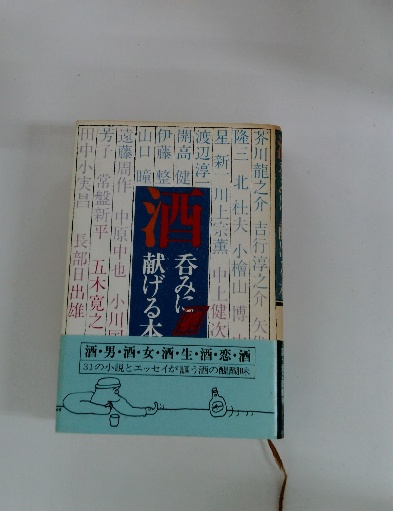 芥川龍之介 吉行淳之介
隆三 北 杜夫 小檜山 博
星 新一 川上宗薫 中上健次
渡辺淳一
開高 健
伊藤 整
山口 瞳
遠藤周作 中原中也 小川国
芳子 常盤新平 五木寛之
田中小実昌 長部日出雄
酒
呑みに
献げる本
酒・男・酒・女・酒・生・酒・恋・酒
31の小説とエッセイが謳う酒の醍醐味